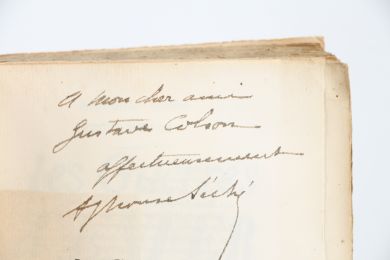 A mon cher ami
Gustave Colson
affectueusement
Alphonse Séché